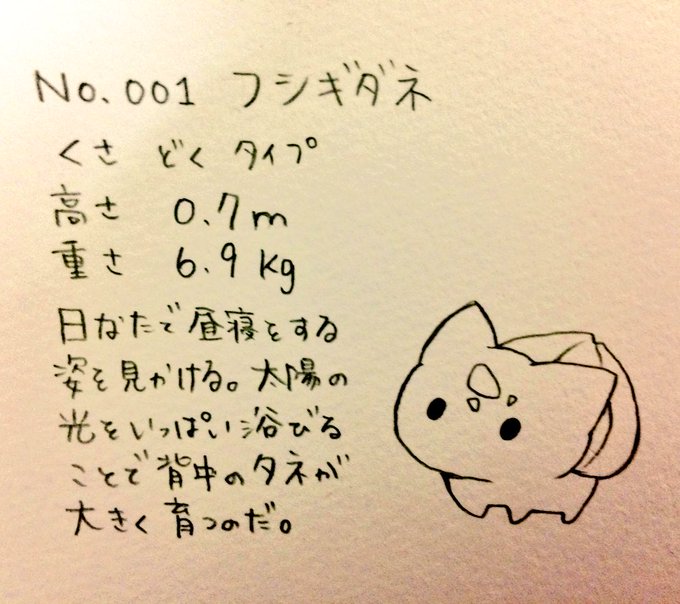 No.001 フシギダネ
くさ どく タイプ
高さ 0.7m
重さ 6.9kg
日なたで昼寝をする
姿を見かける。太陽の
光をいっぱい浴びる
ことで背中のタネが
大きく育つのだ。